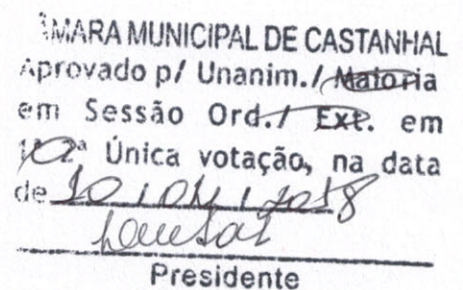 ÂMARA MUNICIPAL DE CASTANHAL
Aprovado p/ Unanim./ Maioria
em Sessão Ord./ Ext. em
2ª Única votação, na data
de 10/04/2018
Presidente